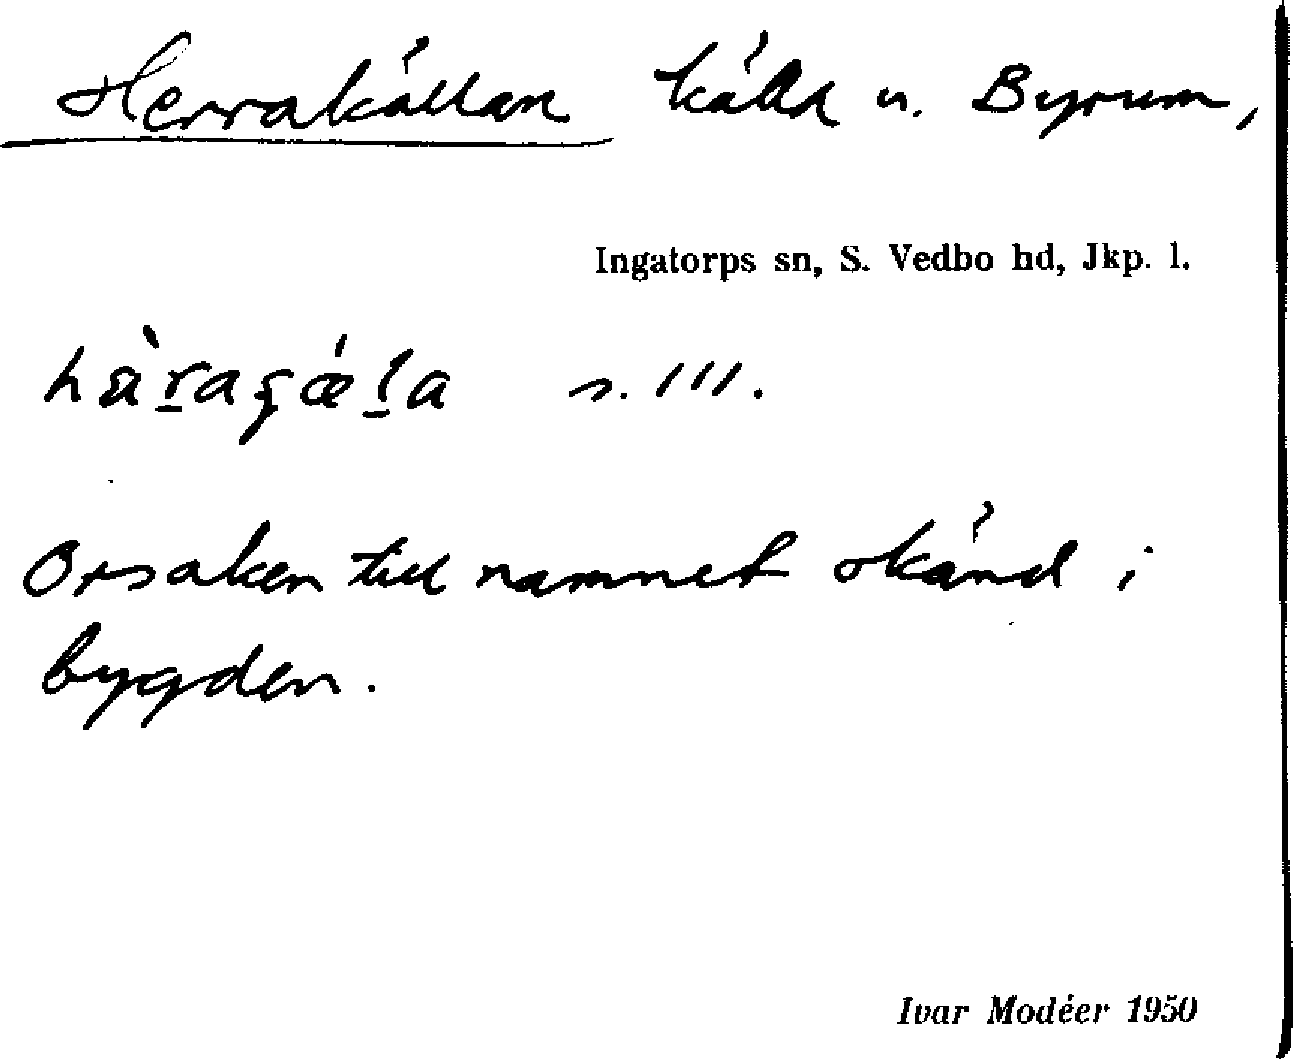 Herrakällan källa n. Byrum,
Ingatorps sn, S. Vedbo hd, Jkp. l.
s. III.
Orsaken till namnet okänd i
bygden.
Ivar Modéer 1950